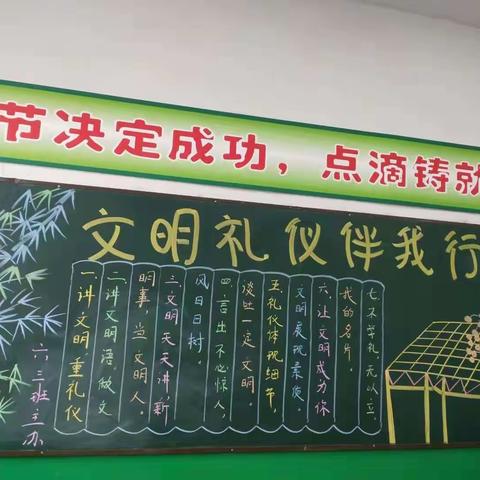 节决定成功，点滴铸就
文明礼仪伴我行
一.讲文明重礼仪
二.讲文明语,做文
明事,当文明人。
三.文明天天讲,新
风日日树.
四.言出不必惊人,
谈吐一定文明.
五.礼仪体现细节,
文明展现素质。
六.让文明成为你
我的名片。
七.不学礼,无以立.
六.三班主办